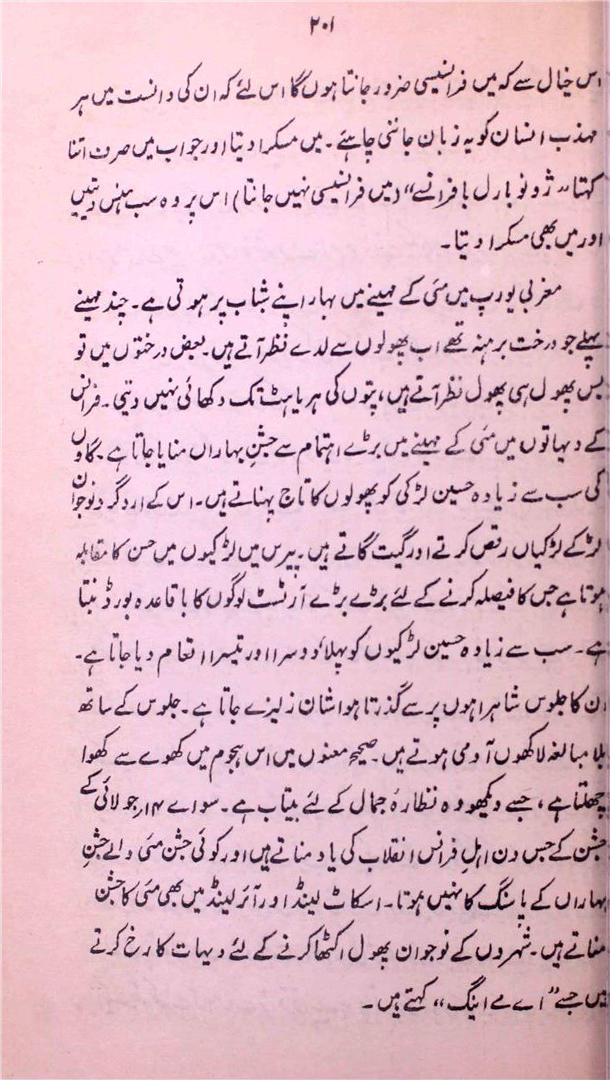 ۲۰۱
اس خیال سے کہ میں فرانسیسی ضرور جانتا ہوں گا اس لئے کہ ان کی دانست میں ہر
مہذب انسان کو یہ زبان جاننی چاہئے۔ میں مسکرا دیتا اور جواب میں صرف اتنا
کہتا "ژو نو پارل پا فرانسے" (میں فرانسیسی نہیں جانتا) اس پر وہ سب ہنس دیتیں
اور میں بھی مسکرا دیتا۔
مغربی یورپ میں مئی کے مہینے میں بہار اپنے شباب پر ہوتی ہے۔ چند مہینے
پہلے جو درخت برہنہ تھے اب پھولوں سے لدے نظر آتے ہیں۔ بعض درختوں میں تو
بس پھول ہی پھول نظر آتے ہیں، پتوں کی ہریاہٹ تک دکھائی نہیں دیتی۔ فرانس
کے دیہاتوں میں مئی کے مہینے میں بڑے اہتمام سے جشنِ بہاراں منایا جاتا ہے۔ گاوں
کی سب سے زیادہ حسین لڑکی کو پھولوں کا تاج پہناتے ہیں۔ اس کے ارد گرد نوجوان
لڑکے لڑکیاں رقص کرتے اور گیت گاتے ہیں۔ پیرس میں لڑکیوں میں حسن کا مقابلہ
ہوتا ہے جس کا فیصلہ کرنے کے لئے بڑے بڑے آرٹسٹ لوگوں کا باقاعدہ بورڈ بنتا
ہے۔ سب سے زیادہ حسین لڑکیوں کو پہلا، دوسرا اور تیسرا انعام دیا جاتا ہے۔
ان کا جلوس شاہراہوں پر سے گذرتا ہوا شانزلیزے جاتا ہے۔ جلوس کے ساتھ
بلا مبالغہ لاکھوں آدمی ہوتے ہیں۔ صحیح معنوں میں اس ہجوم میں کھوے سے کھوا
چھلتا ہے، جسے دیکھو وہ نظارۂ جمال کے لئے بیتاب ہے۔ سواے ۱۴؍ جولائی کے
جشن کے جس دن اہلِ فرانس انقلاب کی یاد مناتے ہیں اور کوئی جشن مئی والے جشنِ
بہاراں کے پاسنگ کا نہیں ہوتا۔ اسکاٹ لینڈ اور آئرلینڈ میں بھی مئی کا جشن
مناتے ہیں۔ شہروں کے نوجوان پھول اکٹھا کرنے کے لئے دیہات کا رخ کرتے
ہیں جسے "اے مے اینگ" کہتے ہیں۔